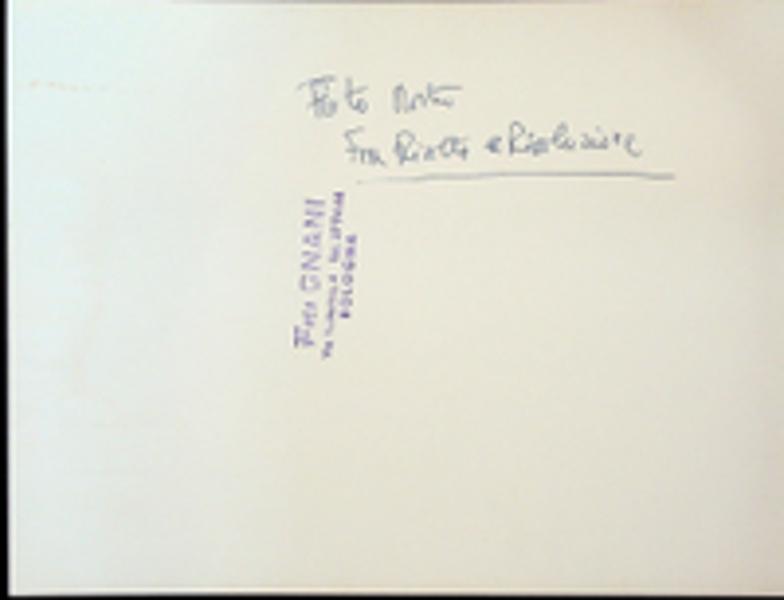 Foto Mostra
Fra Rivolta e Rivoluzione
Foto GNANI
Via
BOLOGNA